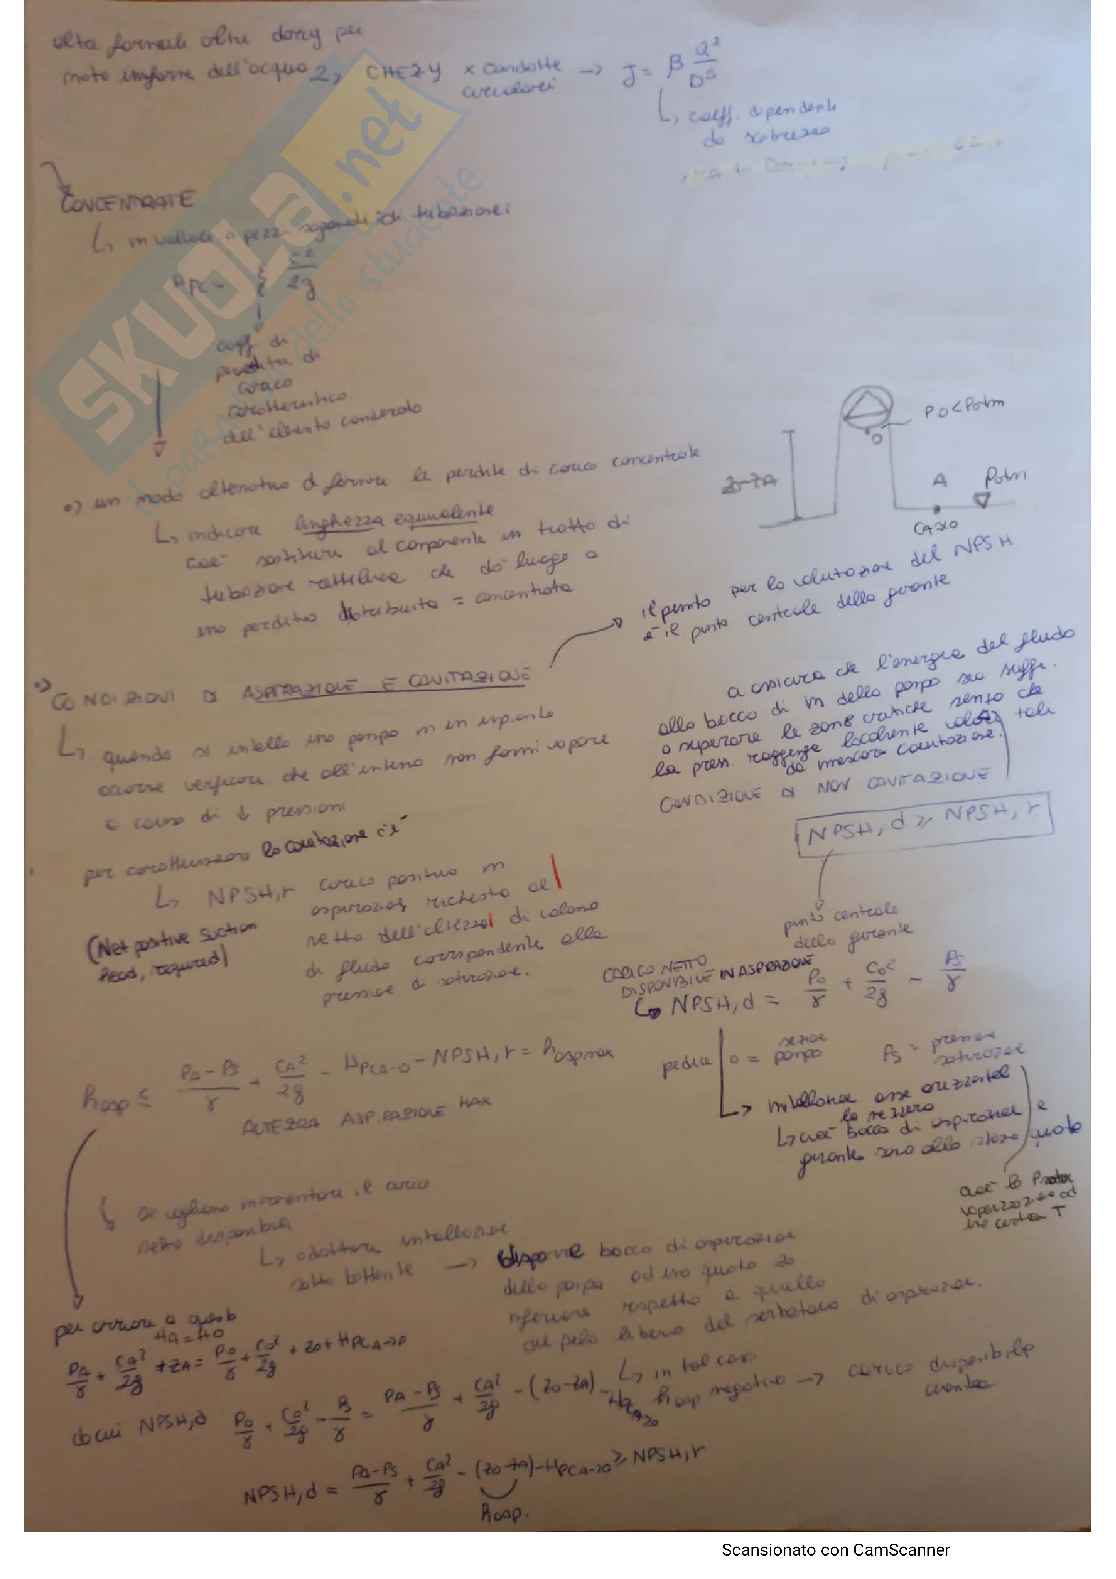 altra formula oltre darcy per
moto uniforme dell'acqua → CHEZY x condotte circolari → J = β Q²/D⁵
↳ coeff. dipendente
da scabrezza
CONCENTRATE
↳ in valvole o pezzi speciali di tubazioni
HPC = ξ c²/2g
coeff. di
perdita di
carico
caratteristico
dell'elemento considerato
SKUOLA.net
•) un modo alternativo di fornire le perdite di carico concentrate
↳ indicare lunghezza equivalente
cioè sostituire al componente un tratto di
tubazione rettilinea che dà luogo a
una perdita distribuita = concentrata
P0 < Patm
O
Z0-ZA
A
Patm
CA≈0
•) CONDIZIONI DI ASPIRAZIONE E CAVITAZIONE
→ il punto per la valutazione del NPSH
è il punto centrale della girante
↳ quando si installa una pompa in un impianto
occorre verificare che all'interno non formi vapore
a causa di ↓ pressioni
per caratterizzare la cavitazione c'è
↳ NPSH,r carico positivo in
aspirazione richiesto al
netto dell'altezza di colonna
di fluido corrispondente alla
pressione di saturazione.
(Net positive suction
head, required)
assicura che l'energia del fluido
alla bocca di in della pompa sia suffi.
a superare le zone critiche senza che
la press raggiunga localmente valori tali
da innescare cavitazione.
CONDIZIONE DI NON CAVITAZIONE
NPSH,d ≥ NPSH,r
punto centrale
della girante
CARICO NETTO
DISPONIBILE IN ASPIRAZIONE
↳ NPSH,d = P0/γ + C0²/2g - Ps/γ
pedice 0 = sezione pompa
Ps = pressione
saturazione
↳ installazione asse orizzontale
la mezzeria
↳ cioè bocca di aspirazione e
girante sono alla stessa quota
cioè la P
vaporizzazione ad
una certa T
hasp ≤ PA-Ps/γ + CA²/2g - HPCA-0 - NPSH,r = hasp max
ALTEZZA ASPIRAZIONE MAX
↳ se vogliamo incrementare il carico
netto disponibile
↳ adottare installazione
sotto battente → disporre bocca di aspirazione
della pompa ad una quota z0
inferiore rispetto a quella
del pelo libero del serbatoio di aspirazione.
↳ in tal caso
hasp negativo → carico disponibile
aumenta
per arrivare a questo
HA = H0
PA/γ + CA²/2g + ZA = P0/γ + C0²/2g + Z0 + HPCA→0
da cui NPSH,d P0/γ + C0²/2g - Ps/γ = PA-Ps/γ + CA²/2g - (Z0-ZA) - HPCA→0
NPSH,d = PA-Ps/γ + CA²/2g - (Z0-ZA) - HPCA→0 ≥ NPSH,r
hasp.
Scansionato con CamScanner